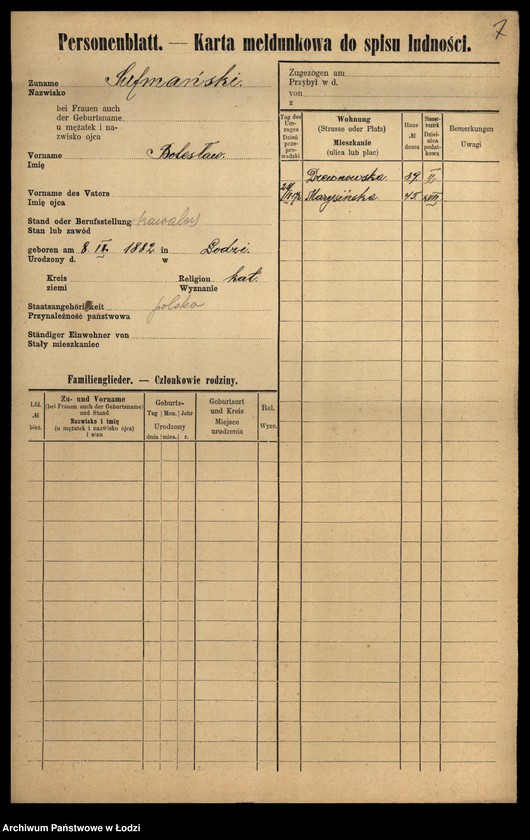 7
Personenblatt. — Karta meldunkowa do spisu ludności.
Zuname Sufmański.
Nazwisko
bei Frauen auch
der Geburtsname
u mężatek i na-
zwisko ojca
Vorname Bolesław.
Imię
Vorname des Vaters
Imię ojca
Stand oder Berufsstellung kawaler
Stan lub zawód
geboren am 8. IX. 1882 in Łodzi.
Urodzony d. w
Kreis Religion kat.
ziemi Wyznanie
Staatsangehörigkeit polska
Przynależność państwowa
Ständiger Einwohner von
Stały mieszkaniec
Familienglieder. — Członkowie rodziny.
Lfd. № bież.
Zu- und Vorname
(bei Frauen auch der Geburtsname
und Stand
Nazwisko i imię
(u mężatek i nazwisko ojca)
i stan
Geburts-
Tag Mon. Jahr
Urodzony
dnia mies. r.
Geburtsort
und Kreis
Miejsce
urodzenia
Rel.
Wyzn.
Zugezogen am
Przybył w d.
von
z
Tag des
Um-
zuges
Dzień
prze-
pro-
wadzki
Wohnung
(Strasse oder Platz)
Mieszkanie
(ulica lub plac)
Haus
№
domu
Steuer-
bezirk
Dziel-
nica
podat-
kowa
Bemerkungen
Uwagi
Drewnowska 39.
Marysińska 45.
Archiwum Państwowe w Łodzi